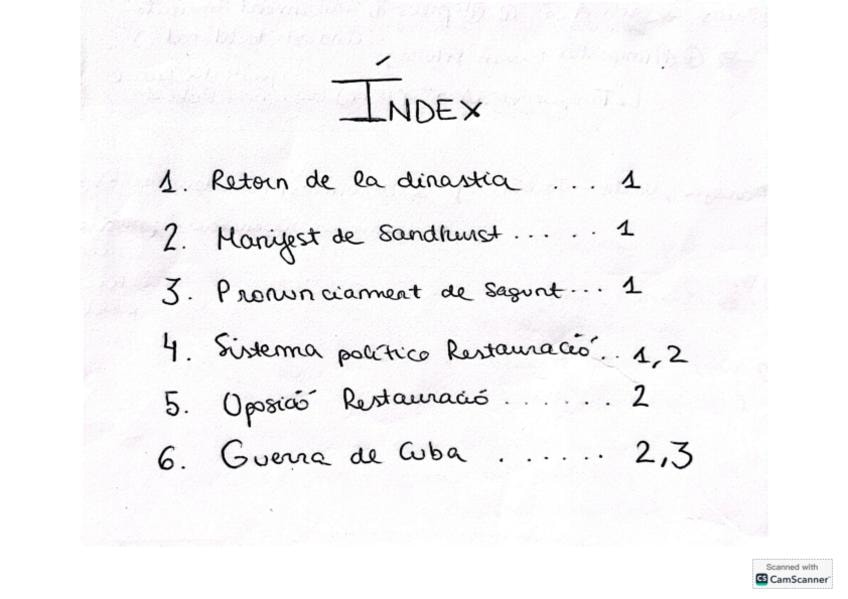 ÍNDEX
1. Retorn de la dinastia ... 1
2. Manifest de Sandhurst ..... 1
3. Pronunciament de Sagunt... 1
4. Sistema político Restauració.. 1,2
5. Oposició Restauració ...... 2
6. Guerra de Cuba ...... 2,3
Scanned with
CS CamScanner